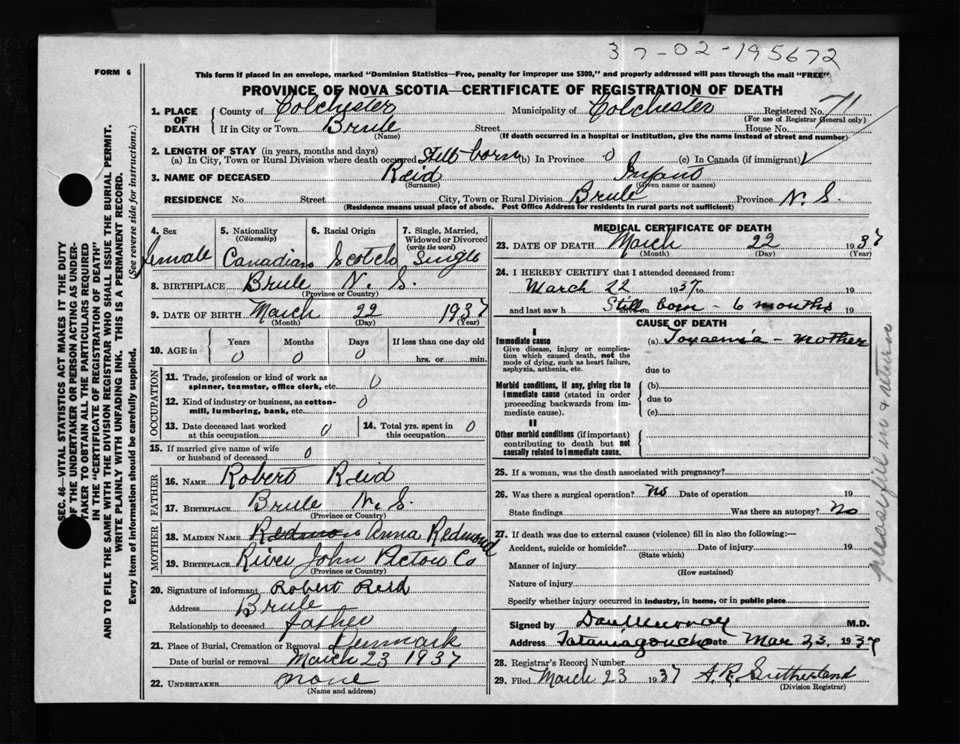 37-02-195672
FORM 6
This form if placed in an envelope, marked "Dominion Statistics—Free, penalty for improper use $300," and properly addressed will pass through the mail "FREE"
PROVINCE OF NOVA SCOTIA—CERTIFICATE OF REGISTRATION OF DEATH
1. PLACE OF DEATH County of Colchester Municipality of Colchester Registered No. 71
(For use of Registrar General only)
If in City or Town Brule Street House No.
(Name) (If death occurred in a hospital or institution, give the name instead of street and number)
2. LENGTH OF STAY (in years, months and days)
(a) In City, Town or Rural Division where death occurred Still born (b) In Province 0 (c) In Canada (if immigrant)
3. NAME OF DECEASED Reid Infant
(Surname) (Given name or names)
RESIDENCE No. Street City, Town or Rural Division Brule Province N. S.
(Residence means usual place of abode. Post Office Address for residents in rural parts not sufficient)
4. Sex female
5. Nationality (Citizenship) Canadian
6. Racial Origin Scotch
7. Single, Married, Widowed or Divorced (write the word) Single
8. BIRTHPLACE Brule N. S.
(Province or Country)
9. DATE OF BIRTH March 22 1937
(Month) (Day) (Year)
10. AGE in Years 0 Months 0 Days 0 If less than one day old hrs. or min.
OCCUPATION
11. Trade, profession or kind of work as spinner, teamster, office clerk, etc. 0
12. Kind of industry or business, as cotton-mill, lumbering, bank, etc. 0
13. Date deceased last worked at this occupation 0
14. Total yrs. spent in this occupation 0
15. If married give name of wife or husband of deceased 0
FATHER
16. NAME Robert Reid
17. BIRTHPLACE Brule N. S.
(Province or Country)
MOTHER
18. MAIDEN NAME Redmon Anna Redmond
19. BIRTHPLACE River John Pictou Co
(Province or Country)
20. Signature of informant Robert Reid
Address Brule
Relationship to deceased father
21. Place of Burial, Cremation or Removal Denmark
Date of burial or removal March 23 1937
22. UNDERTAKER none
(Name and address)
MEDICAL CERTIFICATE OF DEATH
23. DATE OF DEATH March 22 1937
(Month) (Day) (Year)
24. I HEREBY CERTIFY that I attended deceased from:
March 22 1937 to 19
and last saw h Still born - 6 months 19
CAUSE OF DEATH
I
Immediate cause
Give disease, injury or complication which caused death, not the mode of dying, such as heart failure, asphyxia, asthenia, etc.
(a) Toxaemia - Mother
due to
Morbid conditions, if any, giving rise to immediate cause (stated in order proceeding backwards from immediate cause).
(b)
due to
(c)
II
Other morbid conditions (if important) contributing to death but not causally related to immediate cause.
25. If a woman, was the death associated with pregnancy?
26. Was there a surgical operation? No Date of operation 19
State findings Was there an autopsy? No
27. If death was due to external causes (violence) fill in also the following:—
Accident, suicide or homicide? Date of injury 19
(State which)
Manner of injury
(How sustained)
Nature of injury
Specify whether injury occurred in industry, in home, or in public place
Signed by Dan Murray M.D.
Address Tatamagouche Date Mar 23, 1937
28. Registrar's Record Number
29. Filed March 23 1937 A. R. Sutherland
(Division Registrar)
SEC. 46—VITAL STATISTICS ACT MAKES IT THE DUTY
OF THE UNDERTAKER OR PERSON ACTING AS UNDER-
TAKER TO OBTAIN ALL THE PARTICULARS REQUIRED
IN THE "CERTIFICATE OF REGISTRATION OF DEATH"
AND TO FILE THE SAME WITH THE DIVISION REGISTRAR WHO SHALL ISSUE THE BURIAL PERMIT.
WRITE PLAINLY WITH UNFADING INK. THIS IS A PERMANENT RECORD.
Every item of information should be carefully supplied. (See reverse side for instructions.)
please fill in & return